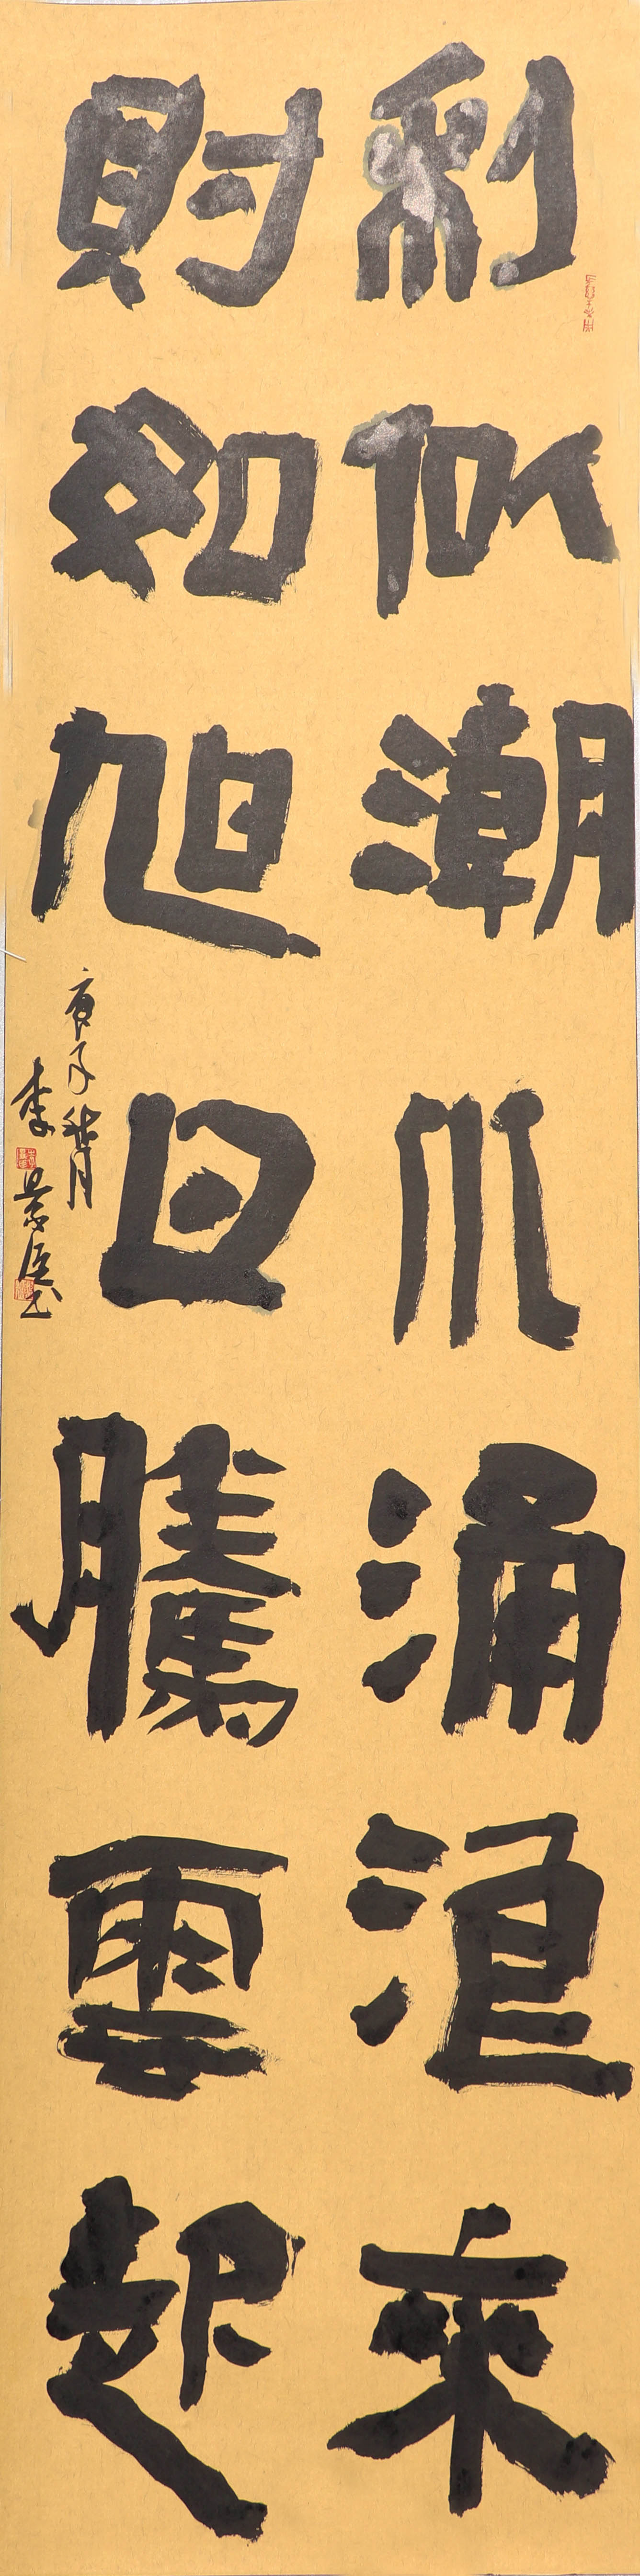 利似潮水涌浪來
財如旭日騰雲起
庚子秋月
李景